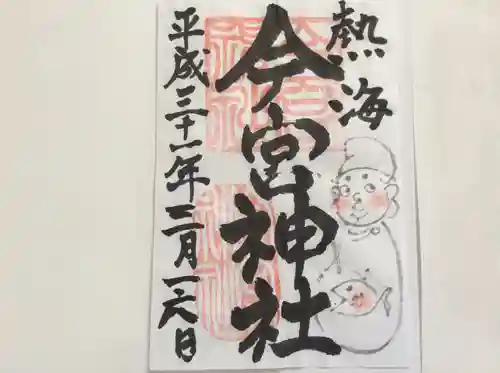 熱海
今宮神社
平成三十一年二月二六日